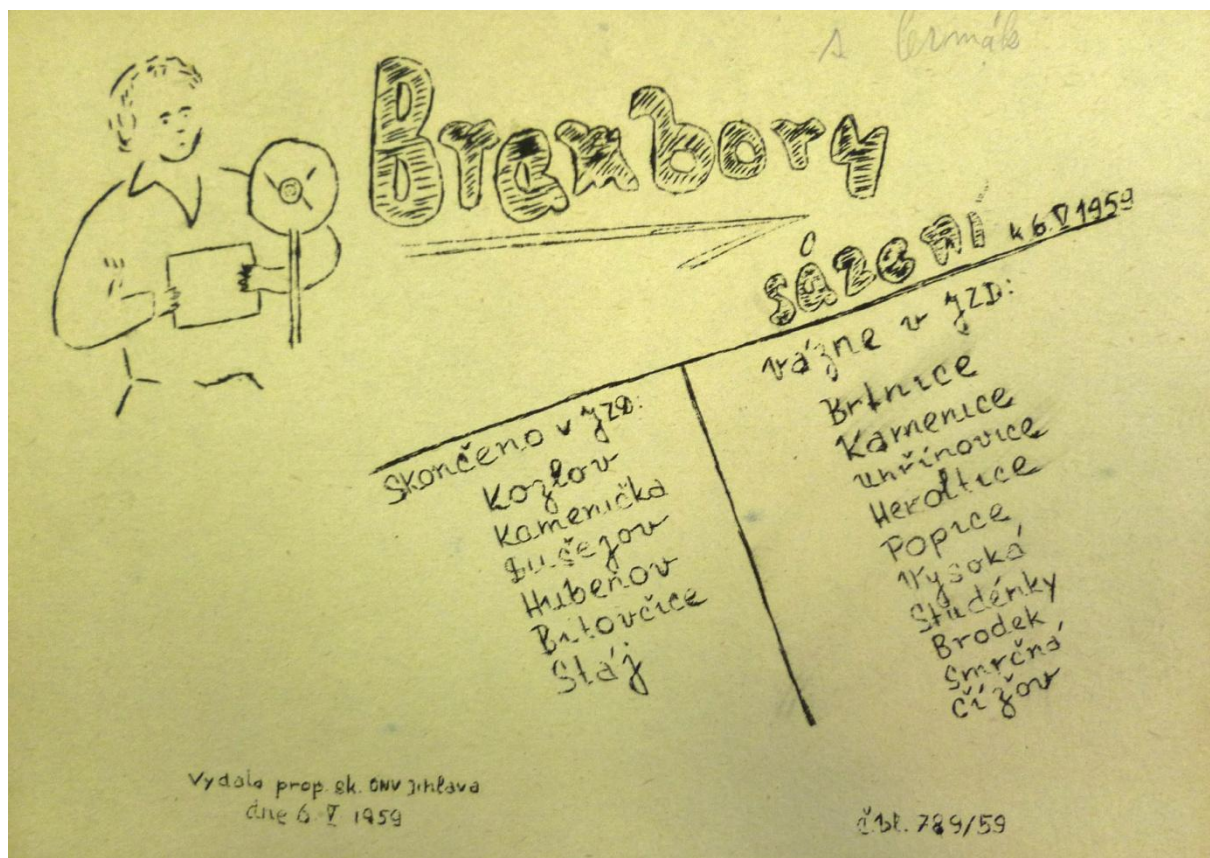 Brambory
sázení k 6. V 1959
Skončeno v JZD:
Kozlov
Kamenička
Dušejov
Hubenov
Bítovčice
Stáj
vázne v JZD:
Brtnice
Kamenice
Uhřínovice
Heroltice
Popice
Vysoká
Studénky
Brodek
Smrčná
Čížov
Vydala prop. sk. ONV Jihlava
dne 6. V 1959
789/59